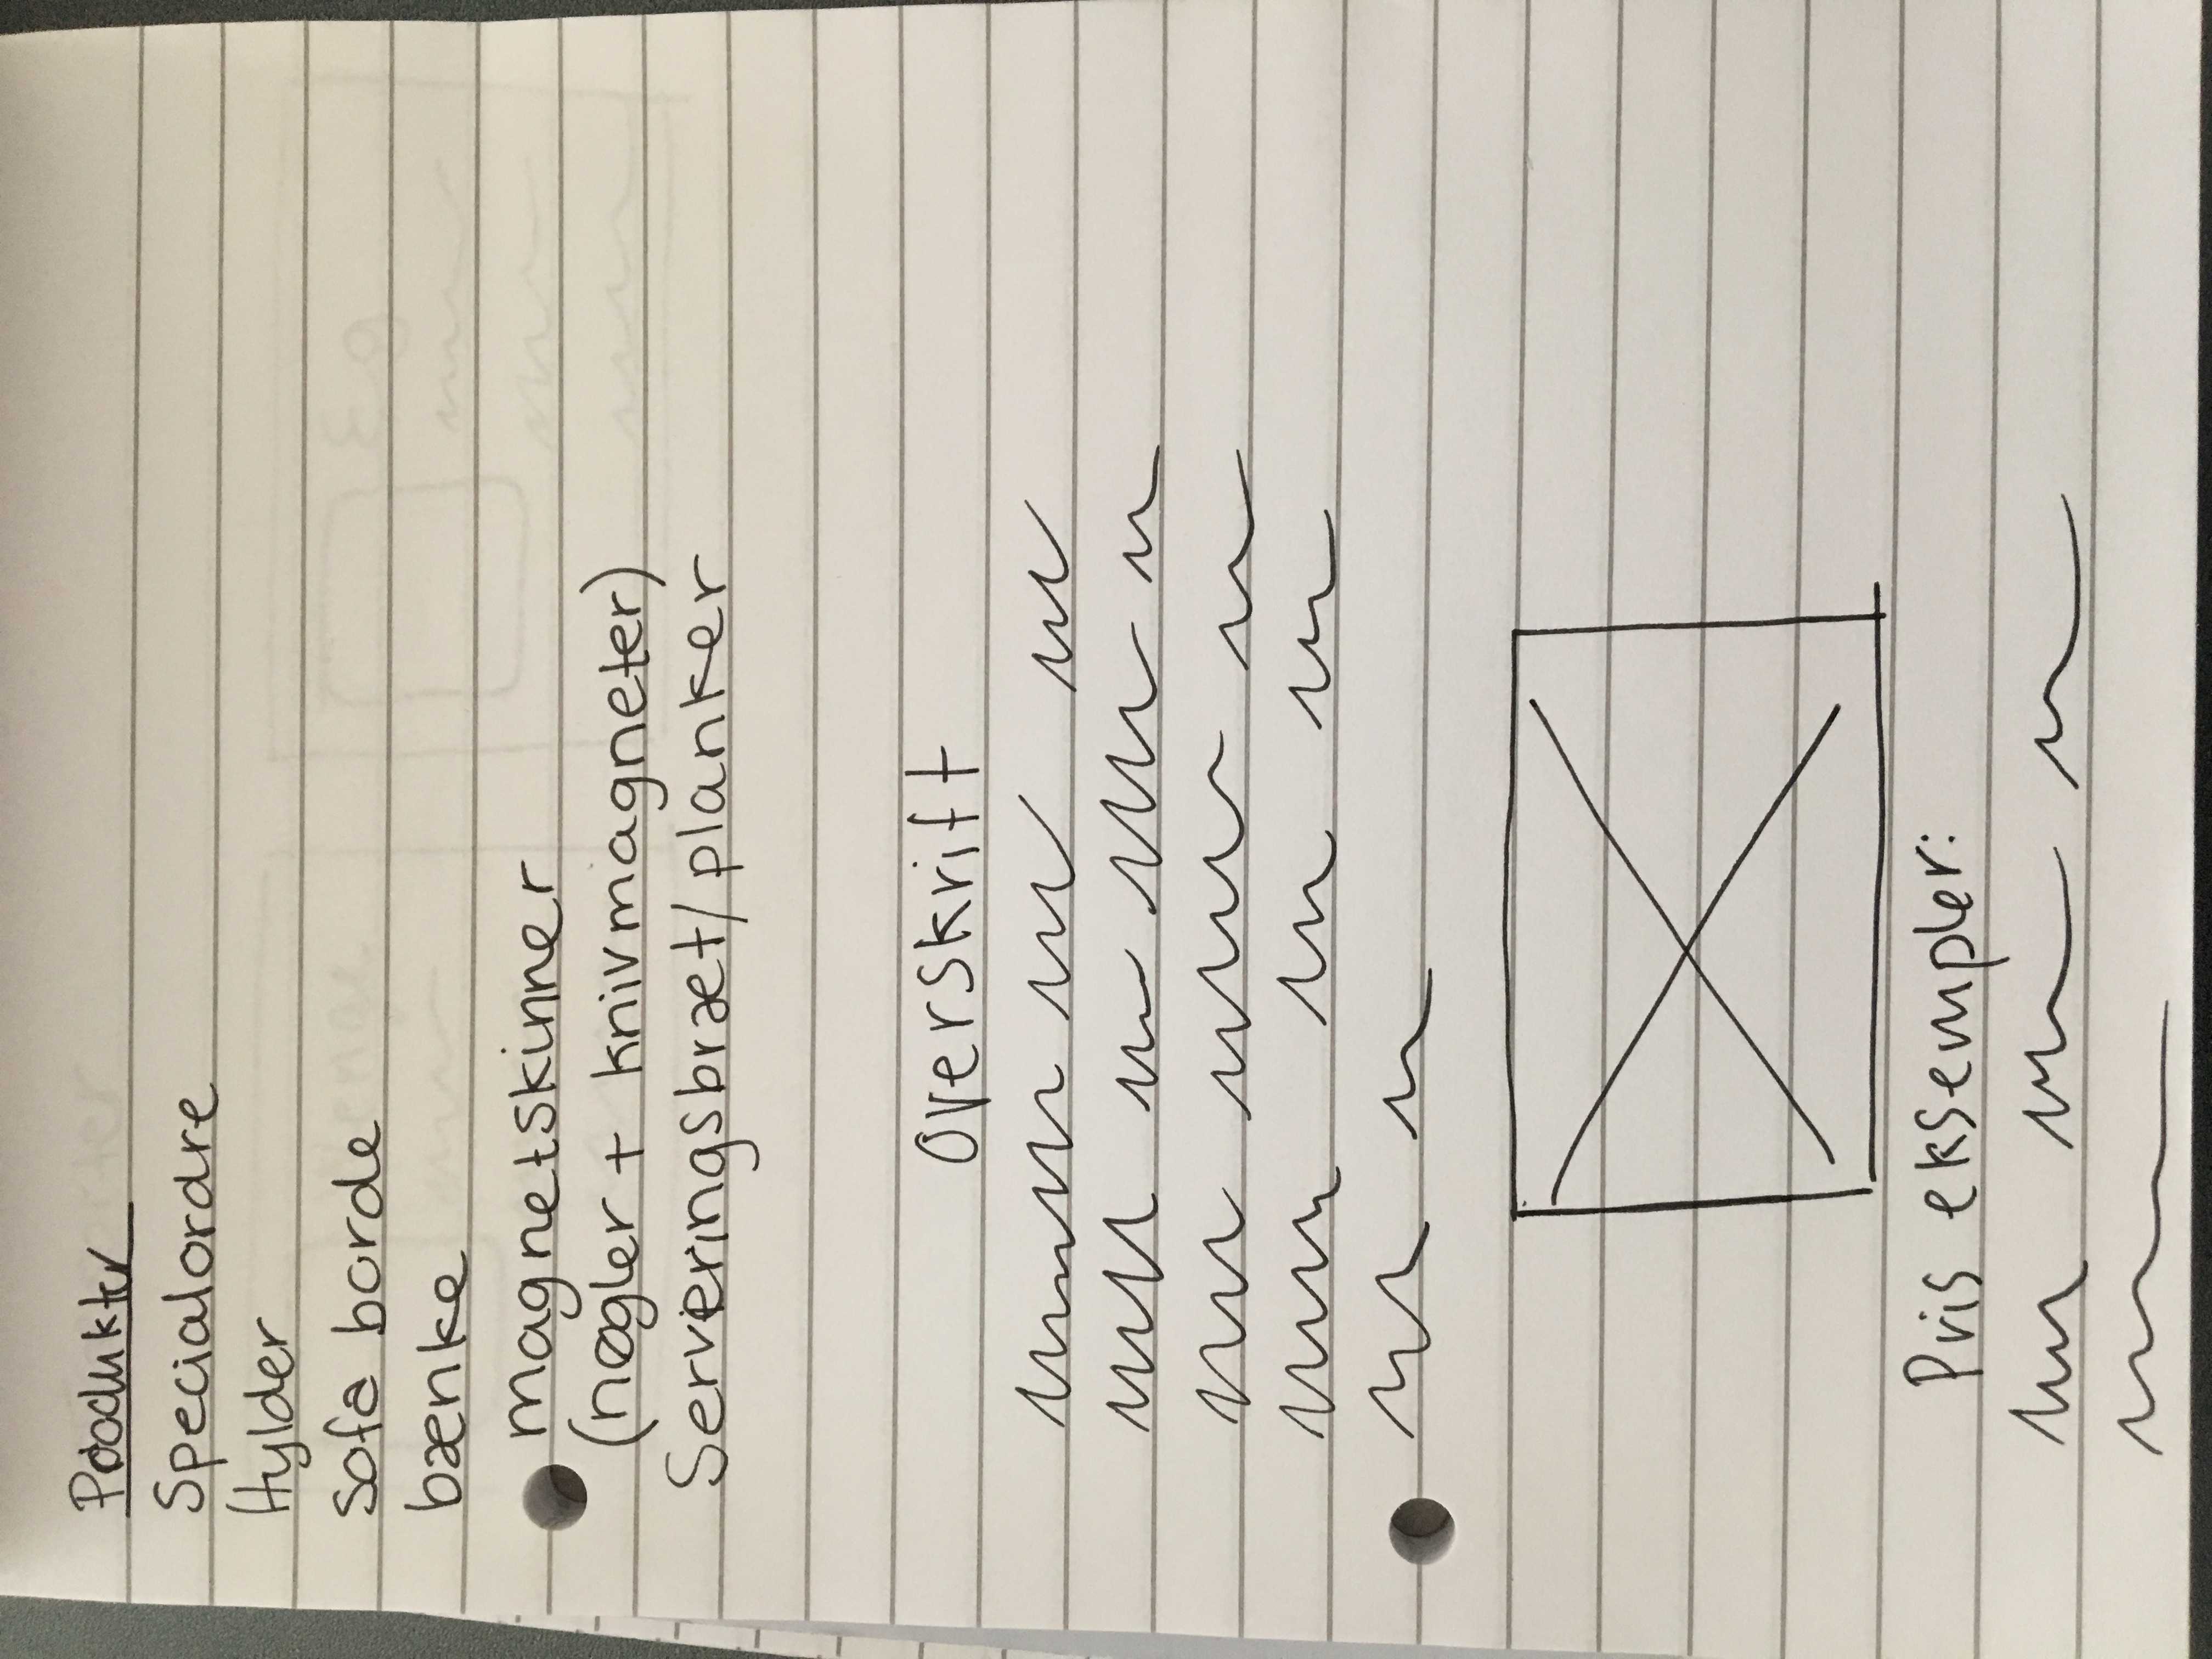 Produkter
Specialordre
Hylder
Sofa borde
bænke
magnetskinner
(nøgler + knivmagneter)
Serveringsbræt/planker
Overskrift
Pris eksempler: